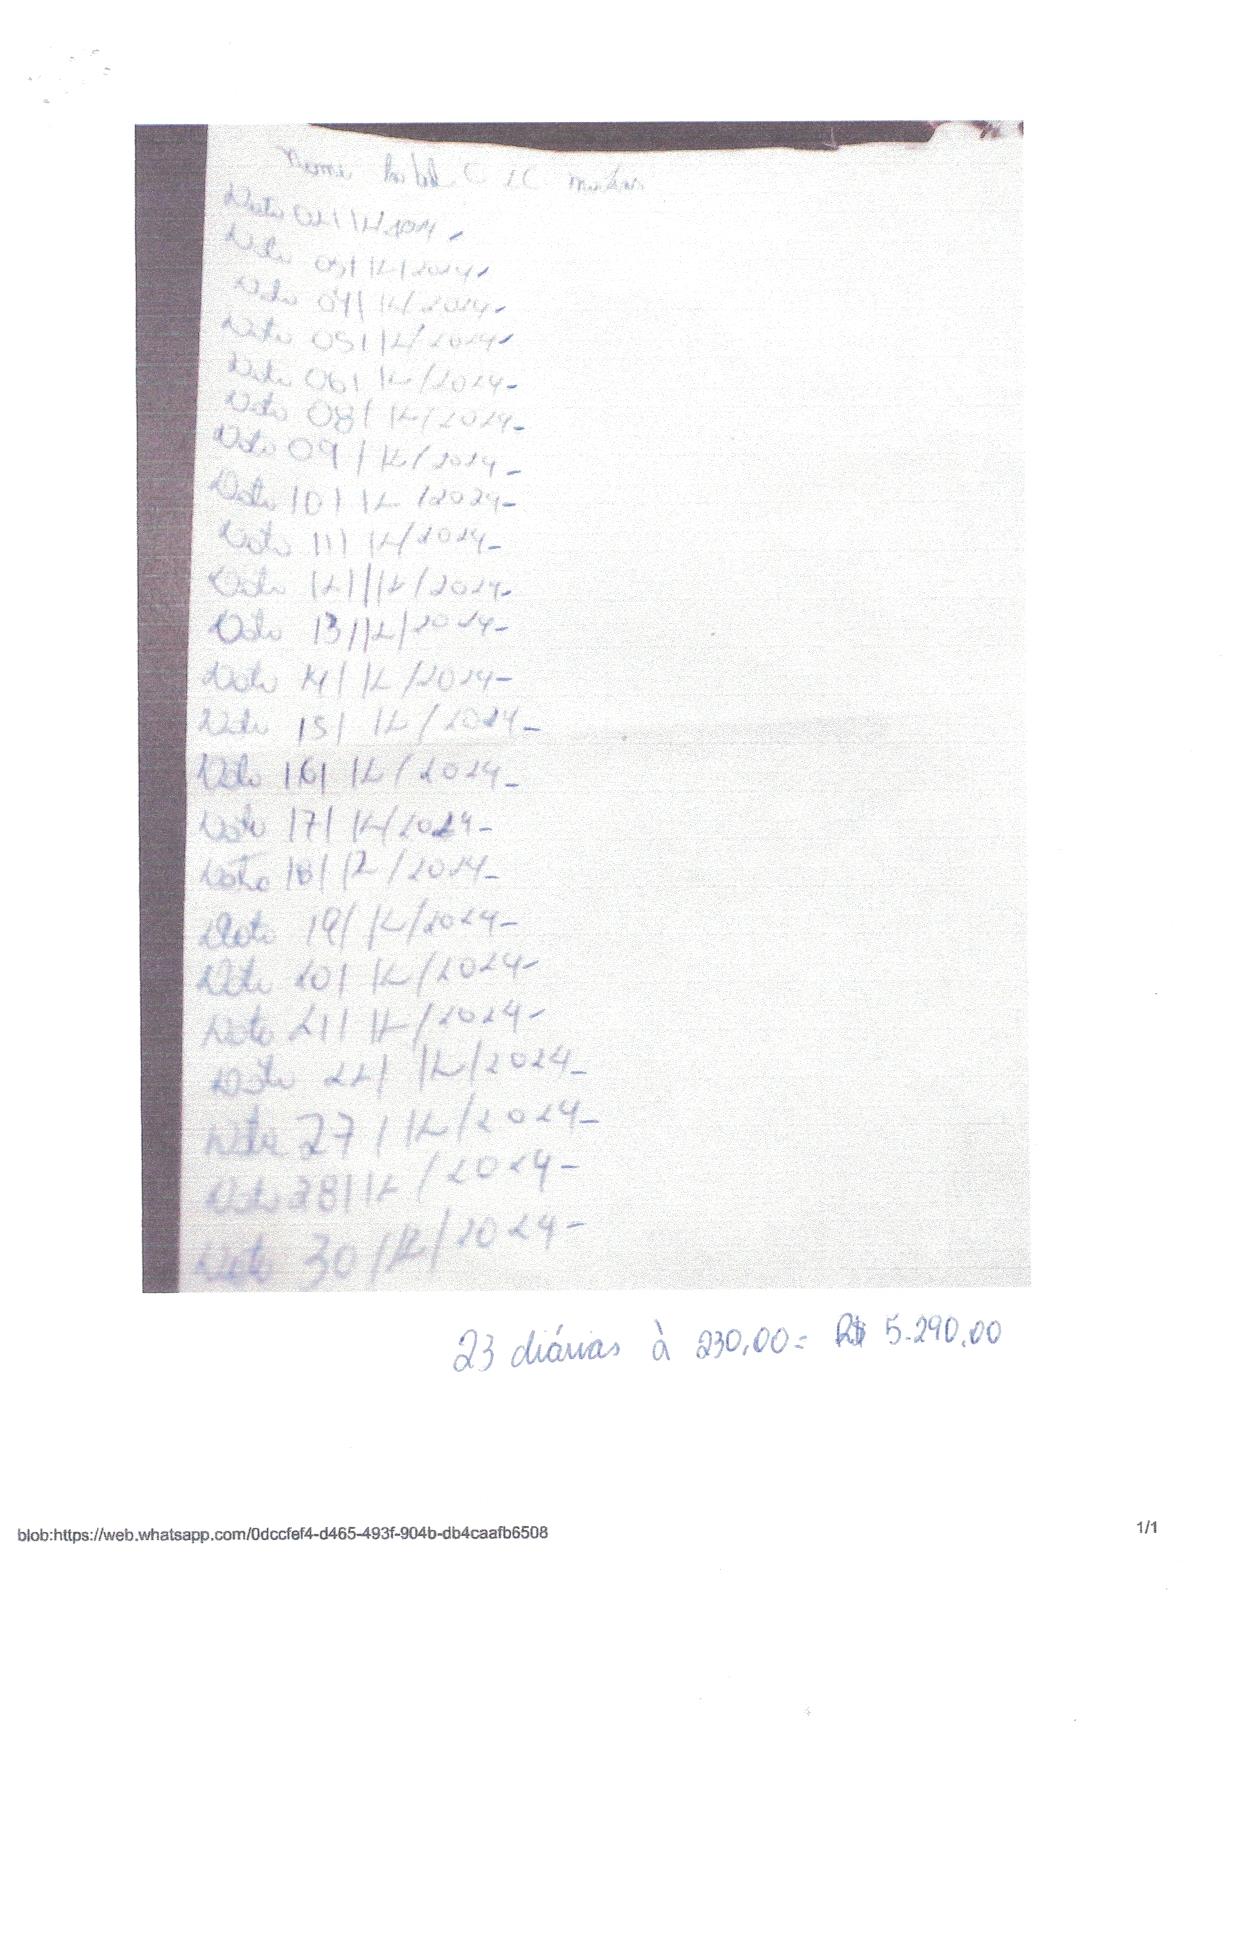 Data 02/12/2024-
Data 03/12/2024-
Data 04/12/2024-
Data 05/12/2024-
Data 06/12/2024-
Data 08/12/2024-
Data 09/12/2024-
Data 10/12/2024-
Data 11/12/2024-
Data 12/12/2024-
Data 13/12/2024-
Data 14/12/2024-
Data 15/12/2024-
Data 16/12/2024-
Data 17/12/2024-
Data 18/12/2024-
Data 19/12/2024-
Data 20/12/2024-
Data 21/12/2024-
Data 22/12/2024-
Data 27/12/2024-
Data 28/12/2024-
Data 30/12/2024-
23 diárias à 230,00= R$ 5.290,00
blob:https://web.whatsapp.com/0dccfef4-d465-493f-904b-db4caafb6508
1/1